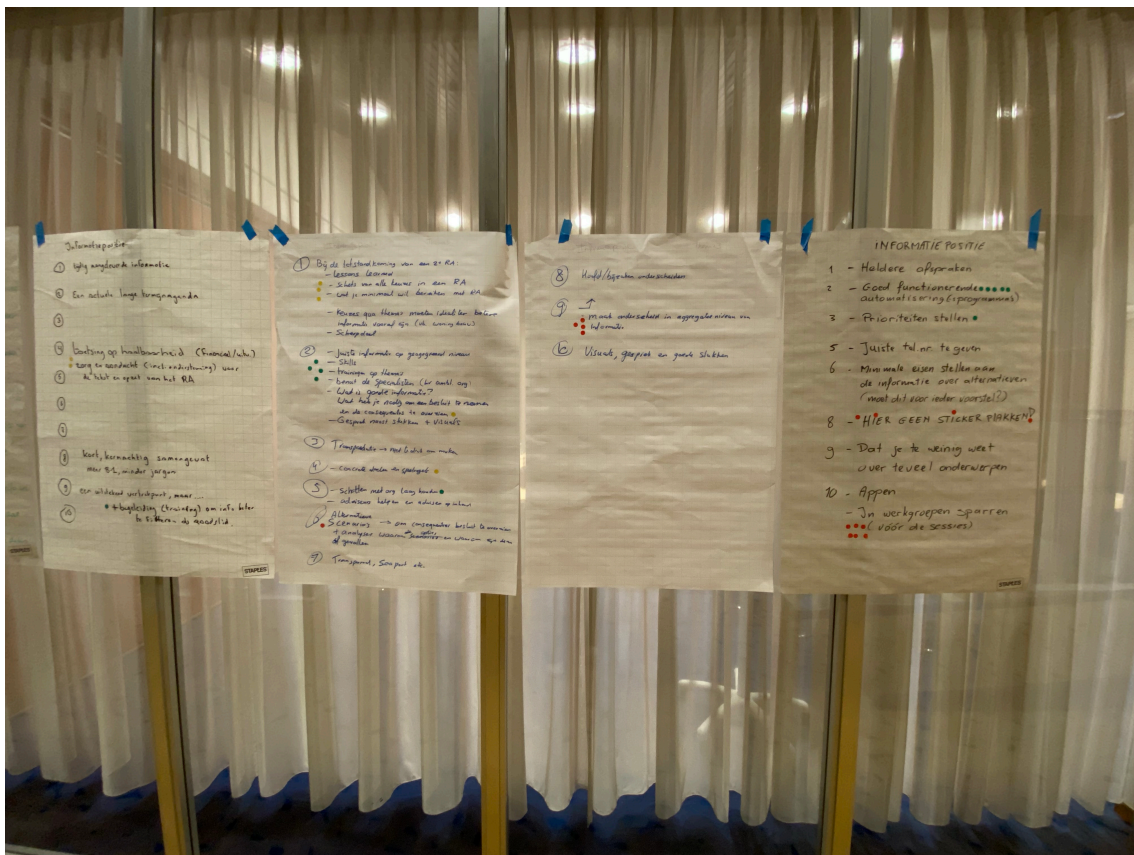 Informatiepositie
① tijdig aangeleverde informatie
② Een actuele lange termijnagenda
③
④ toetsing op haalbaarheid (Financieel/
zorg en aandacht (incl. ondersteuning) voor
⑤ de tekst en opzet van het RA
⑥
⑦
⑧ kort, kernachtig samengevat
max B1, minder jargon
⑨ een wildekeid vertrekpunt, maar
⑩ + begeleiding (training) om info beter
te
als raadslid.
STAPLES
① Bij de totstandkoming van een RA:
- Lessons learned
- Schets van alle keuzes in een RA
- Wat je minimaal wil bereiken met RA
- Keuzes qua thema's moeten idealiter
informatie vooraf zijn (vb woningbouw)
- Scherpdoel
② - Juiste informatie op geaggregeerd niveau
- Skills
- training op thema's
- benut de specialisten (bv ambt. org)
- Wat is goede informatie?
Wat heb je nodig om een besluit te nemen
en de consequenties te overzien
- Gesprek naast stukken + VISUALS
③ Transparantie →
④ - concrete doelen
⑤ - Schotten met org laag houden
- adviseurs helpen en adviseren
⑥ Alternatieven
Scenarios → om consequenties besluit te overzien
+ analyse waarom scenario's en waarom
gevallen
⑦ Transparant, Smart etc.
⑧ Hoofd/bijzaken onderscheiden
⑨ ↑
- maak onderscheid in aggregatie niveau van
informatie
⑩ Visuals, gesprek en goede stukken
INFORMATIE POSITIE
1 - Heldere afspraken
2 - Goed functionerende
automatisering (programma's)
3 - Prioriteiten stellen
5 - Juiste tel.nr. te geven
6 - Minimale eisen stellen aan
de informatie over alternatieven
(moet dit vóór ieder voorstel?)
8 - HIER GEEN STICKER PLAKKEN!
9 - Dat je te weinig weet
over teveel onderwerpen
10 - Appen
- In werkgroepen sparren
(vóór de sessies)
STAPLES